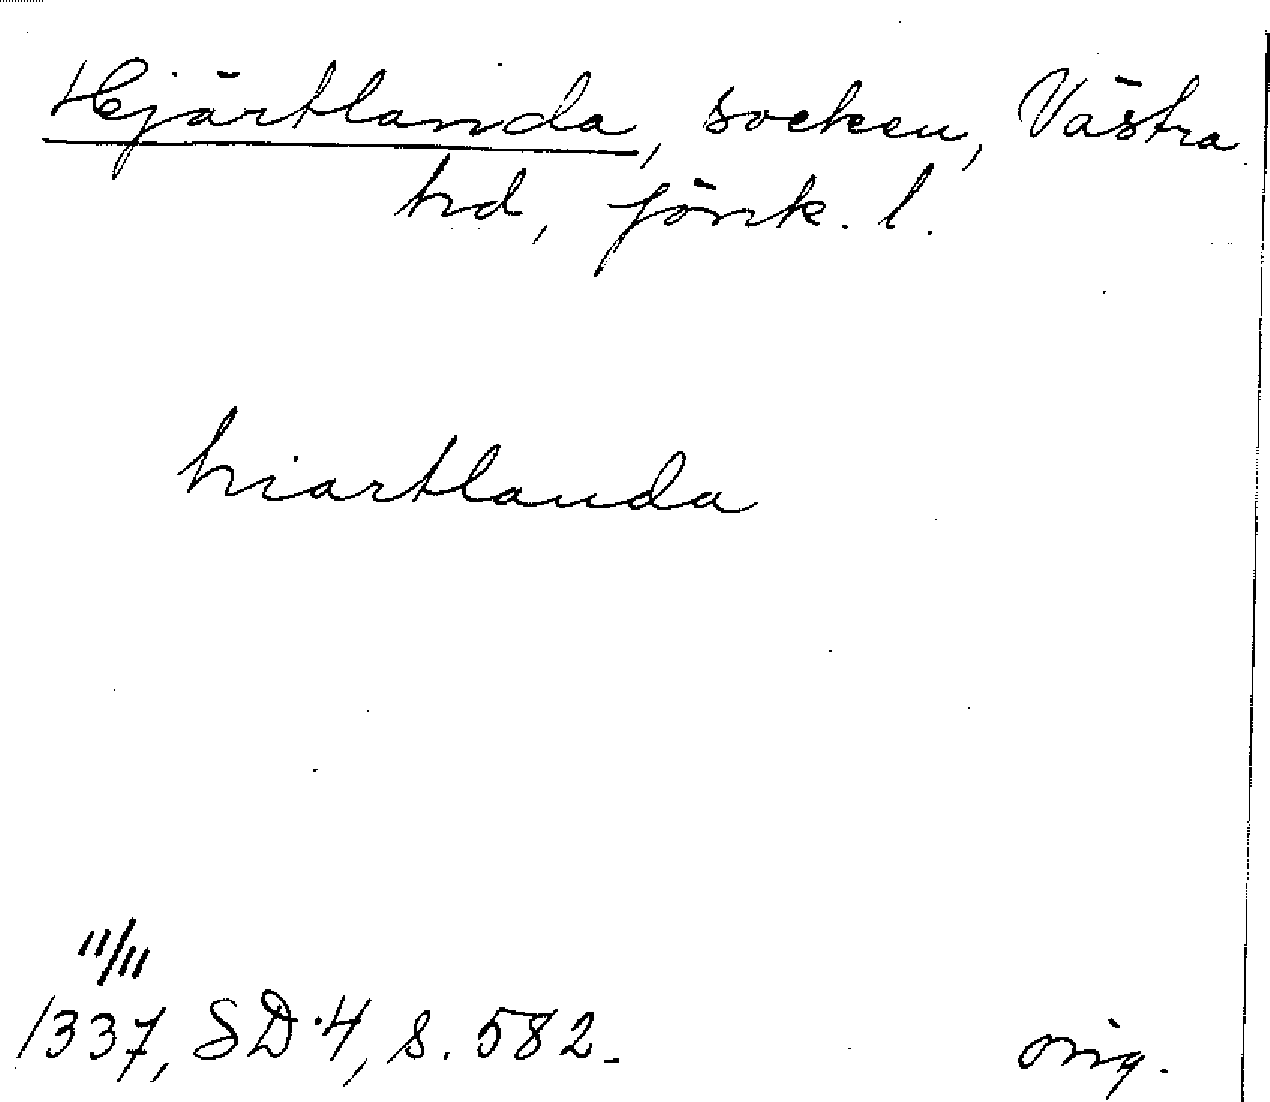 Hjärtlanda, socken, Västra
hd, Jönk. l.
hiartlanda
11/11
1337, SD 4, s. 582.
orig.